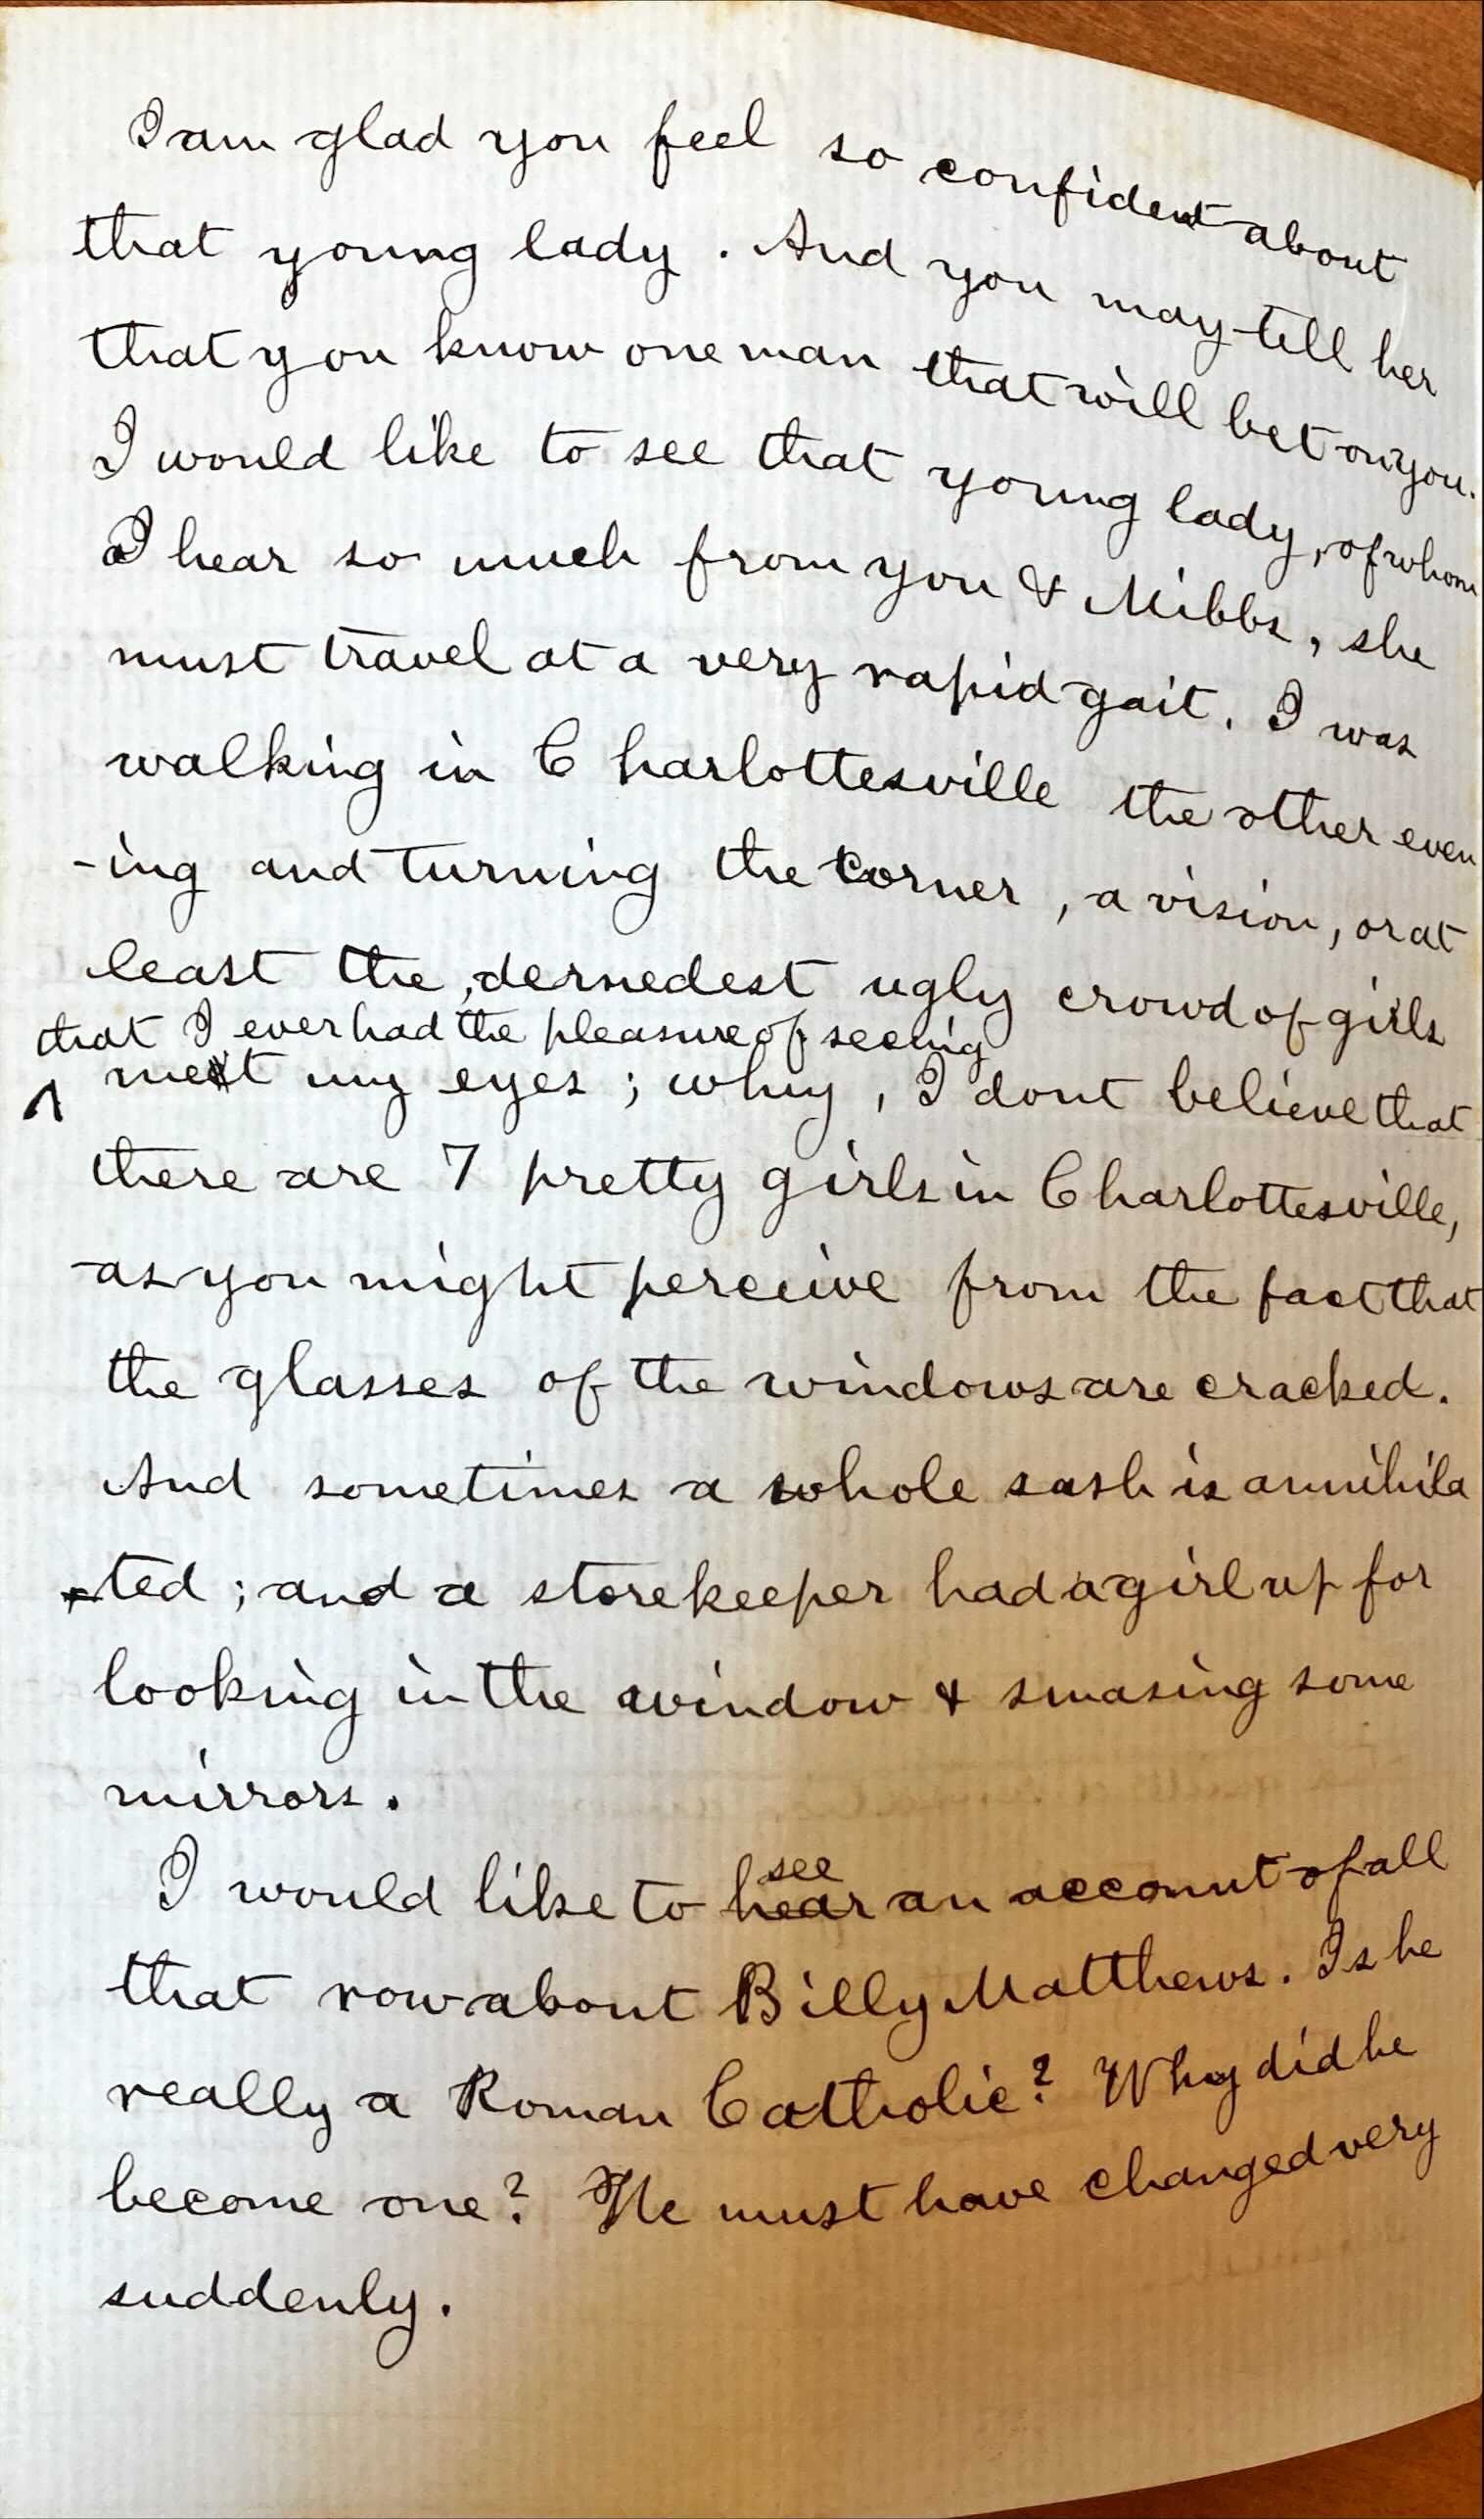 I am glad you feel so confident about
that young lady. And you may tell her
that you know one man that will bet on you.
I would like to see that young lady, of whom
I hear so much from you & Mibbs, she
must travel at a very rapid gait. I was
walking in Charlottesville the other even
-ing and turning the corner, a vision, or at
least the, dernedest ugly crowd of girls
that I ever had the pleasure of seeing
met my eyes; why, I dont believe that
there are 7 pretty girls in Charlottesville,
as you might perceive from the fact that
the glasses of the windows are cracked.
And sometimes a whole sash is annihila
-ted; and a storekeeper had a girl up for
looking in the window & smasing some
mirrors.
see
I would like to hear an account of all
that row about Billy Matthews. Is he
really a Roman Catholic? Why did he
become one? He must have changed very
suddenly.